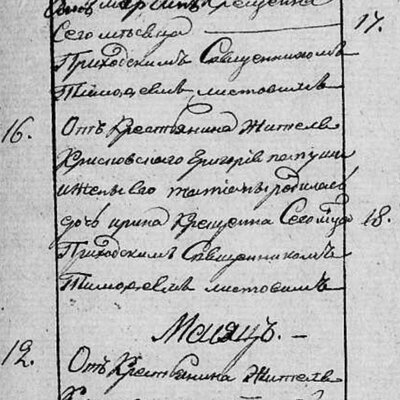 Крещенна
Сего мѣсеца
17.
Приходскимъ Священникомъ
Тимофеемъ Листовимъ
16. Отъ Крестянина Жителя
Григорія
и жены его родилась
дочь ирина Крещенна Сего м͠ца 18.
Приходскимъ Священникомъ
Тимофеемъ Листовимъ
Месяцъ.
12. Отъ Крестьянина Жителя